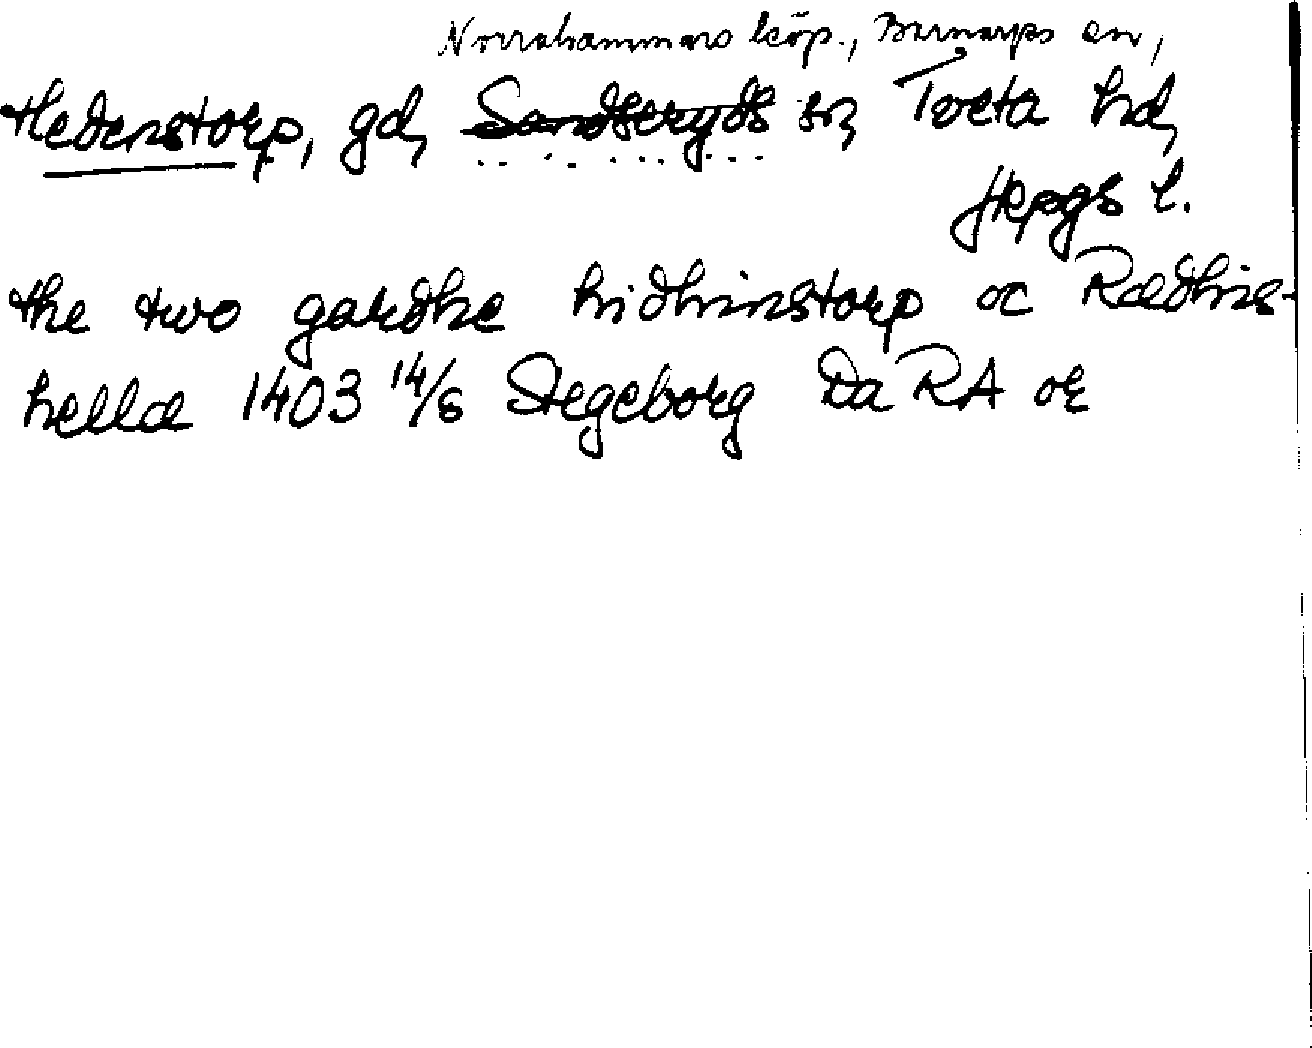 Norrahammars köp., Barnarps sn,
Hedenstorp, gd, Sandseryds sn, Tveta hd,
Jkpgs l.
the two gardhe hidhinstorp oc Rædhis-
hella 1403 14/6 Stegeborg Da RA or